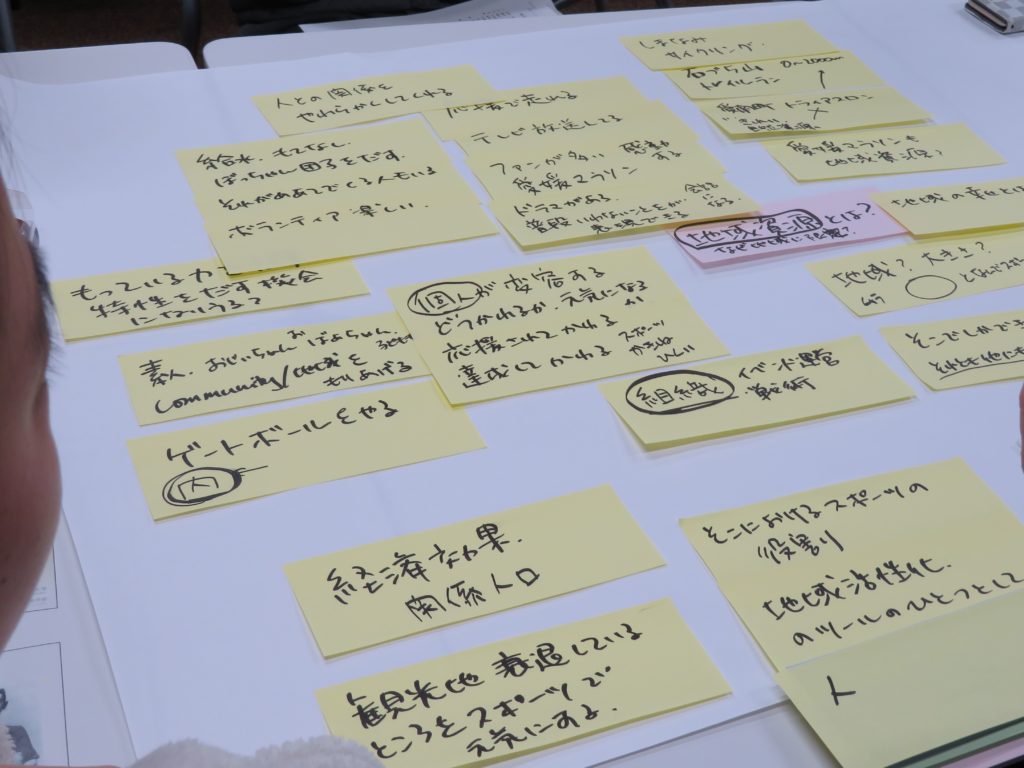 しまなみ
サイクリング
石づち山
トレイルラン
0〜2000m
トライアスロン
愛媛マラソンも
地域資源?
人との関係を
やわらかくしてくれる
で走れる
テレビ放送してる
ファンが多い 感動
する
愛媛マラソン
ドラマがある
普段
給水、もてなし
ぼっちゃん団子をだす
それがめあてでくる人もいる
ボランティア 楽しい
地域資源とは?
なぜ地域に
地域の幸せとは
地域? 大きさ?
もっている力
特性をだす機会
になりうる?
個人が変容する
どうかわるか 元気になる
応援されてかわる
達成してかわる
スポーツ
そこでしかでき
それとも他にも
素人、おじいちゃん、おばあちゃん、
community/地域を
もりあげる
組織 イベント運営
戦術
ゲートボールをやる
内
経済効果、
関係人口
そこにおけるスポーツの
役割
地域活性化
のツールのひとつとして
人
観光地 衰退している
ところをスポーツで
元気にする